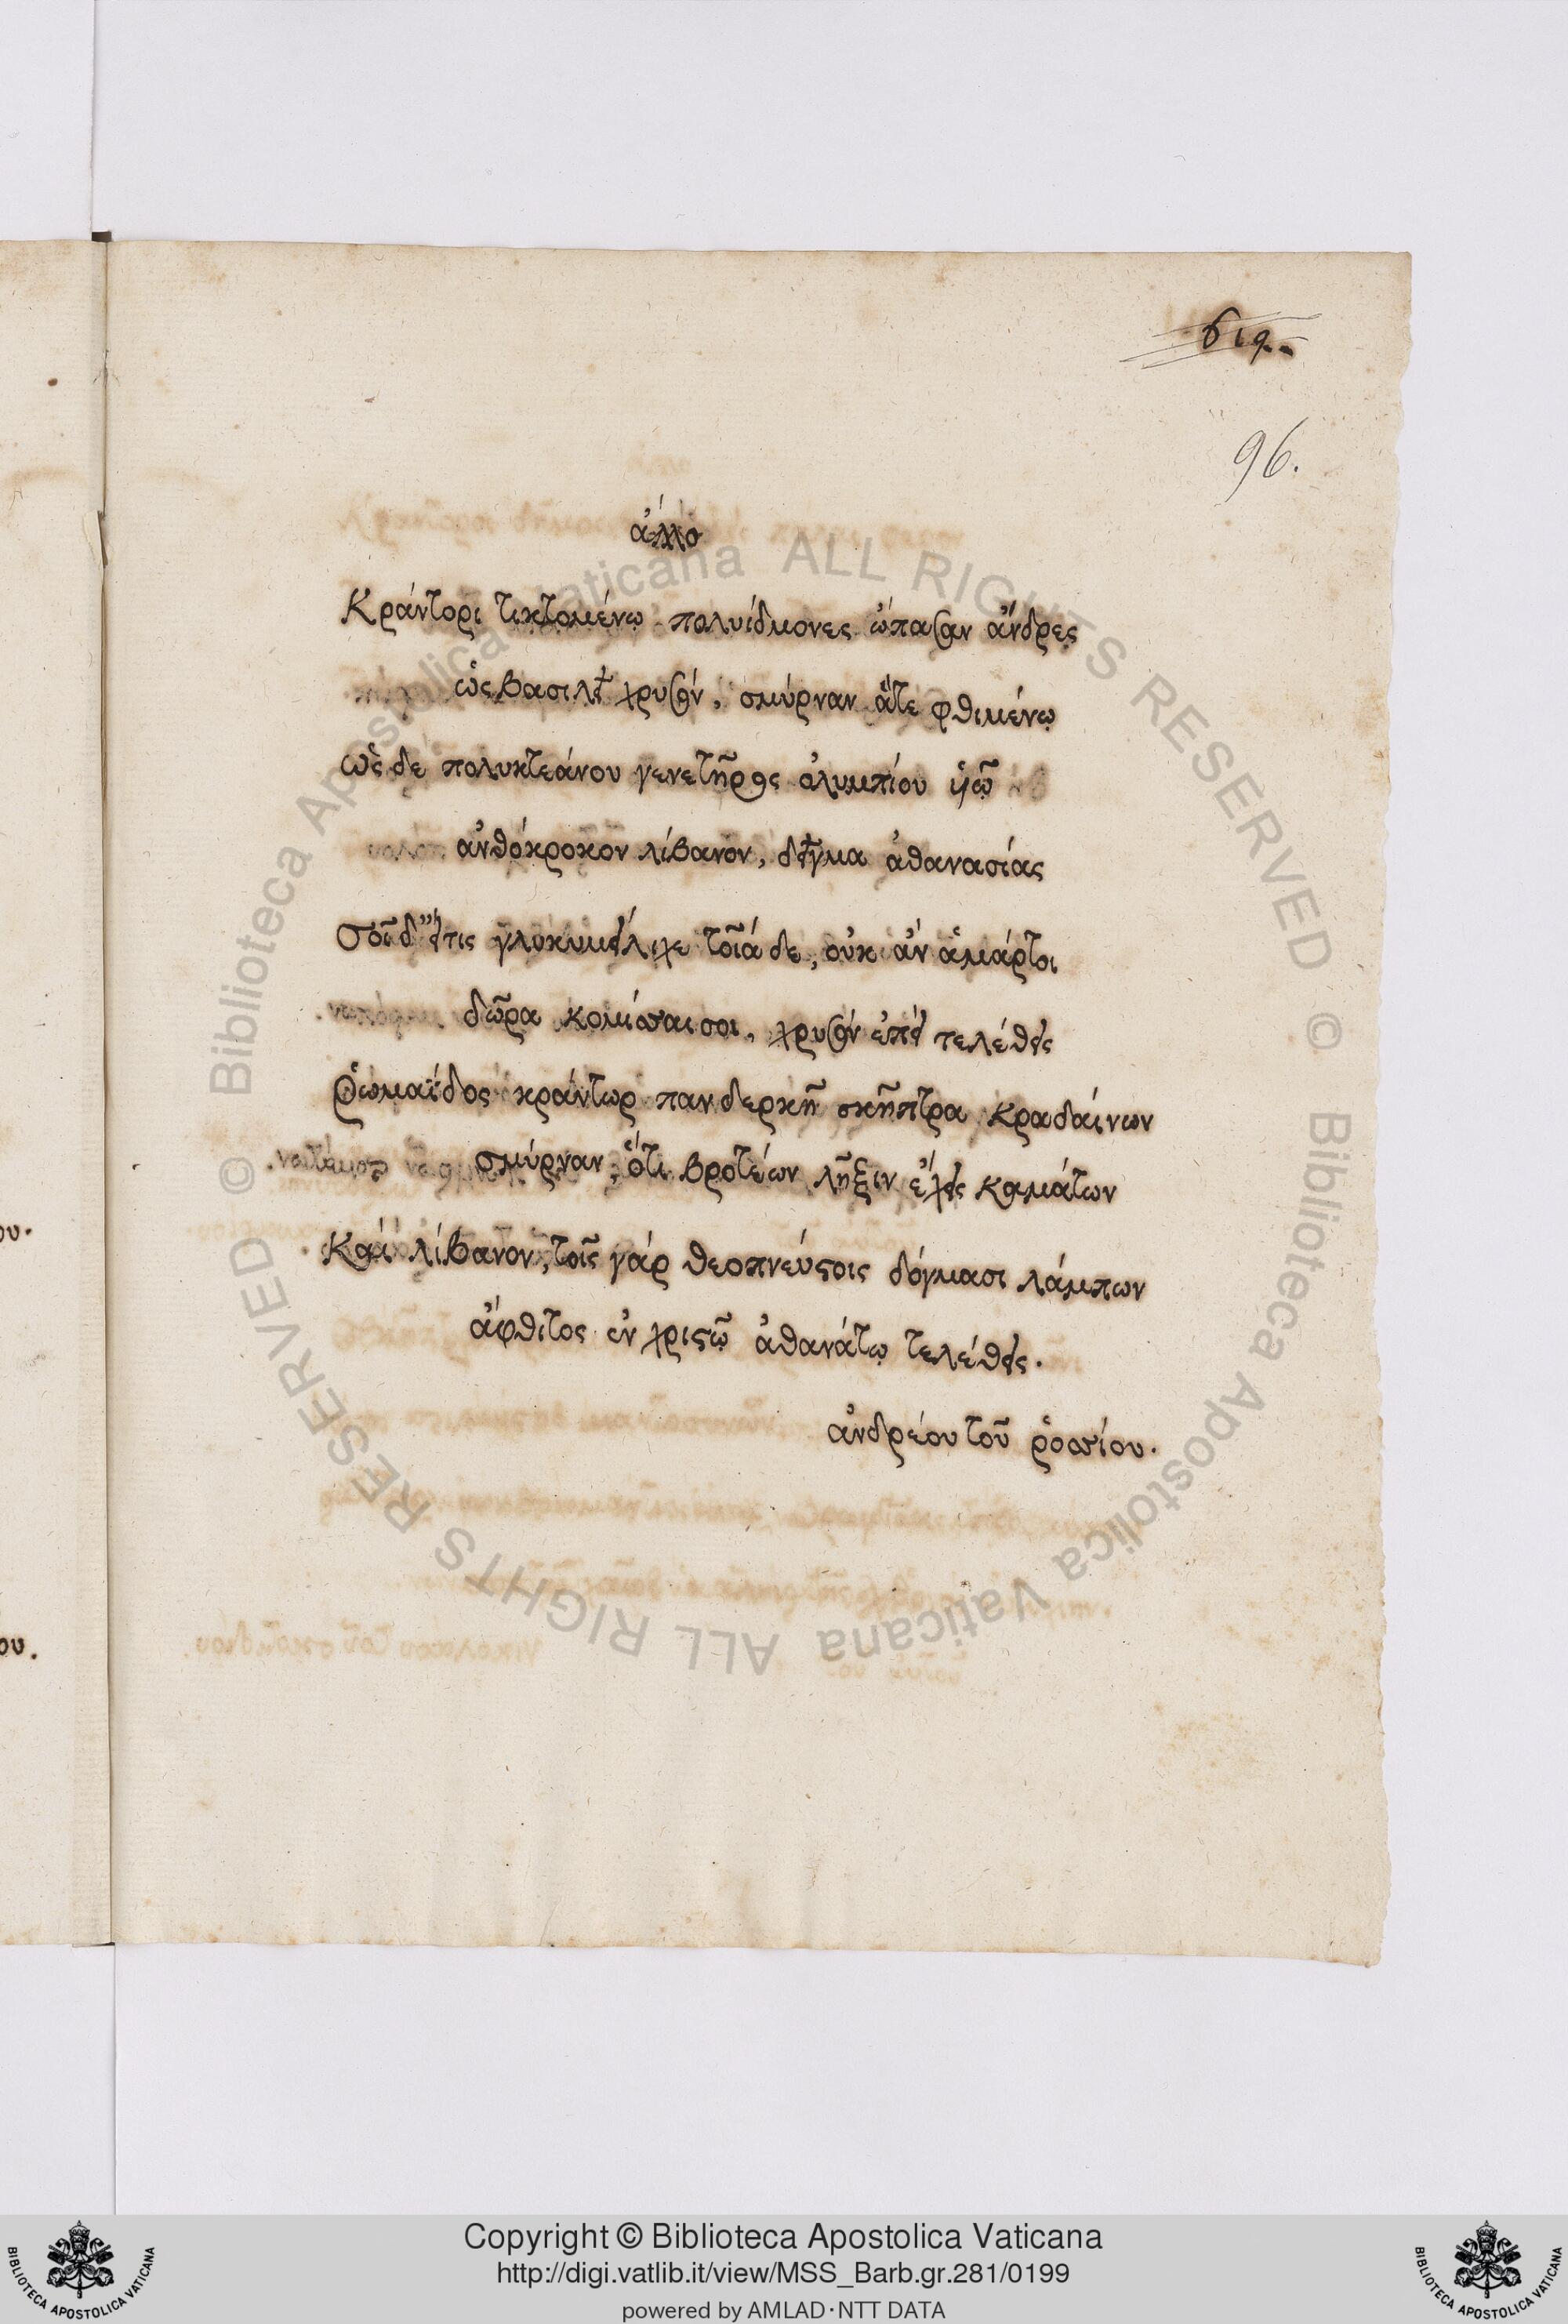 619.
96.
ἄλλο
Κράντορι τικτομένῳ πολυίδμονες ὤπασαν ἄνδρες
ὡς βασιλεῖ χρυσόν, σμύρναν ἅτε φθιμένῳ
ὡς δὲ πολυκτεάνου γενετῆρος ὀλυμπίου υἱῷ
ἀνθόκροκον λίβανον, δεῖγμα ἀθανασίας
Σοὶ δ' εἴτις γλυκυμείλιχε τοῖά δε, οὐκ ἂν ἁμάρτοι
δῶρα κομίσαι σοι, χρυσόν ἐπεὶ τελέθεις
Ῥωμαΐδος κράντωρ πανδερκῆ σκῆπτρα κραδαίνων
σμύρναν, ὅτι βροτέων λῆξιν ἔχεις καμάτων
Καὶ λίβανον, τοῖς γάρ θεοπνεύστοις δόγμασι λάμπων
ἄφθιτος ἐν χριστῷ ἀθανάτῳ τελέθεις.
ἀνδρέου τοῦ ῥοσίου.
ου.
ου.
© Biblioteca Apostolica Vaticana ALL RIGHTS RESERVED
© Biblioteca Apostolica Vaticana ALL RIGHTS RESERVED
Copyright © Biblioteca Apostolica Vaticana
http://digi.vatlib.it/view/MSS_Barb.gr.281/0199
powered by AMLAD·NTT DATA
BIBLIOTECA APOSTOLICA VATICANA
BIBLIOTECA APOSTOLICA VATICANA